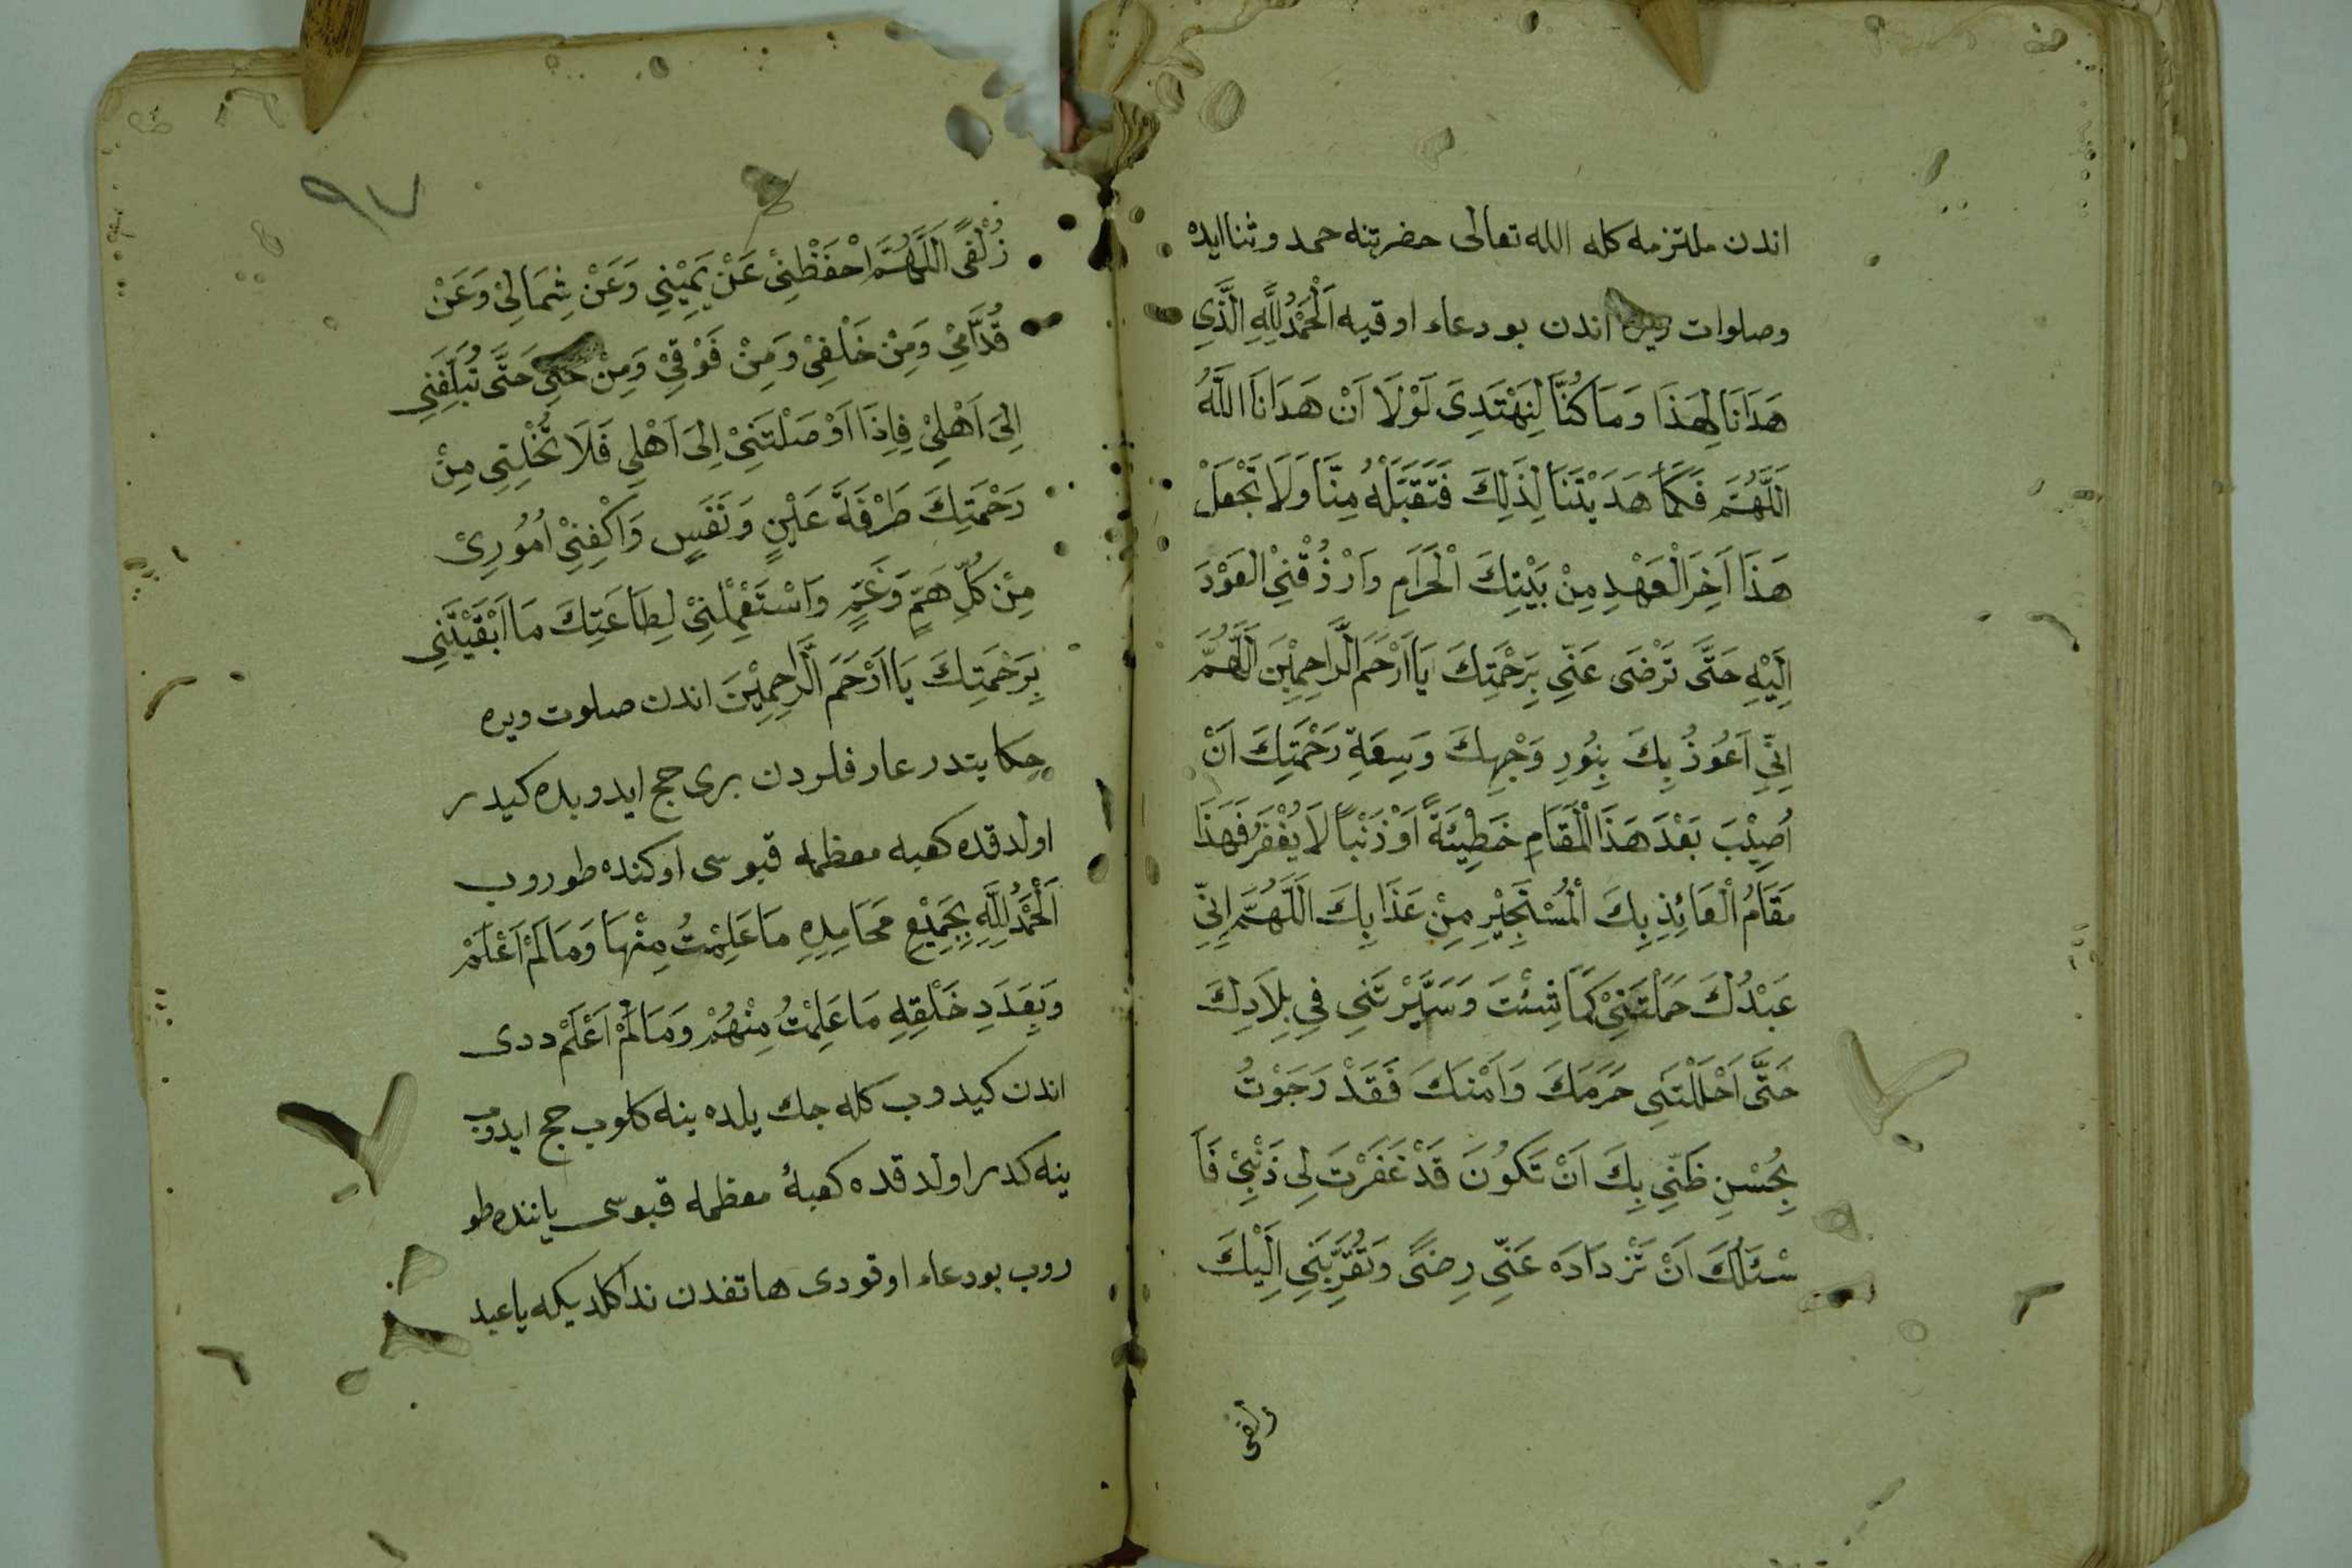 اندن ملتزمه كله الله تعالى حضرتنه حمد وثنا ايده
وصلوات ويره اندن بو دعاء اوقيه اَلْحَمْدُ لِلَّهِ الَّذِي
هَدَانَا لِهَذَا وَمَا كُنَّا لِنَهْتَدِىَ لَوْلَا اَنْ هَدَانَا اللَّهُ
اَللَّهُمَّ فَكَمَا هَدَيْتَنَا لِذَلِكَ فَتَقَبَّلْهُ مِنَّا وَلَا تَجْعَلْ
هَذَا اَخِرَ الْعَهْدِ مِنْ بَيْتِكَ الْحَرَامِ وَارْزُقْنِي الْعَوْدَ
اِلَيْهِ حَتَّى تَرْضَى عَنِّي بِرَحْمَتِكَ يَا اَرْحَمَ الرَّاحِمِيْنَ اَللَّهُمَّ
اِنِّي اَعُوذُ بِكَ بِنُورِ وَجْهِكَ وَسِعَةِ رَحْمَتِكَ اَنْ
اُصِيْبَ بَعْدَ هَذَا الْمَقَامِ خَطِيْئَةً اَوْ ذَنْبًا لَا يُغْفَرُ فَهَذَا
مَقَامُ الْعَائِذِ بِكَ الْمُسْتَجِيْرِ مِنْ عَذَابِكَ اَللَّهُمَّ اِنِّي
عَبْدُكَ حَمَلْتَنِيْ كَمَا شِئْتَ وَسَيَّرْتَنِي فِي بِلَادِكَ
حَتَّى اَحْلَلْتَنِي حَرَمَكَ وَاَمْنَكَ فَقَدْ رَجَوْتُ
بِحُسْنِ ظَنِّي بِكَ اَنْ تَكُونَ قَدْ غَفَرْتَ لِي ذَنْبِيْ فَاَ
سْئَلُكَ اَنْ تَزْدَادَه عَنِّي رِضًى وَتُقَرِّبَنِي اِلَيْكَ
زلفى
٩٧
زُلْفًى اَللَّهُمَّ احْفَظْنِيْ عَنْ يَمِيْنِي وَعَنْ شِمَالِيْ وَعَنْ
قُدَّامِيْ وَمِنْ خَلْفِيْ وَمِنْ فَوْقِيْ وَمِنْ تَحْتِي حَتَّى تُبَلِّغَنِي
اِلَى اَهْلِيْ فَاِذَا اَوْصَلْتَنِيْ اِلَى اَهْلِي فَلَا تُخْلِنِي مِنْ
رَحْمَتِكَ طَرْفَةَ عَيْنٍ وَنَفَسٍ وَاكْفِنِيْ اُمُورِىْ
مِنْ كُلِّ هَمٍّ وَغَمٍّ وَاسْتَعْمِلْنِيْ لِطَاعَتِكَ مَا اَبْقَيْتَنِي
بِرَحْمَتِكَ يَا اَرْحَمَ الرَّاحِمِيْنَ اندن صلوت ويره
حكايتدر عارفلردن برى حج ايدوب بلده كيدر
اولدقده كعبه معظمه قبوسى اوكنده طوروب
اَلْحَمْدُ لِلَّهِ بِجَمِيْعِ مَحَامِدِهِ مَا عَلِمْتُ مِنْهَا وَمَا لَمْ اَعْلَمْ
وَبِعَدَدِ خَلْقِهِ مَا عَلِمْتُ مِنْهُمْ وَمَا لَمْ اَعْلَمْ ددى
اندن كيدوب كله جك يلده ينه كلوب حج ايدوب
ينه كدر اولدقده كعبۀ معظمه قبوسى ياننده طو
روب بو دعاء اوقودى هاتفدن ندا كلديكه يا عبد